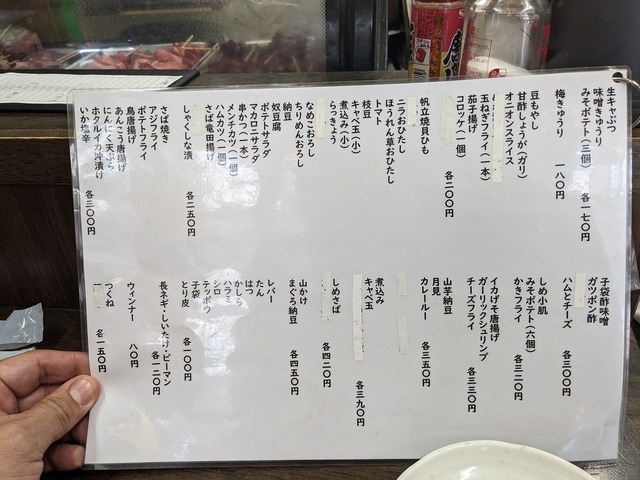 生キャぶつ
味噌きゅうり
みそポテト（三個）
各一七〇円
梅きゅうり
一八〇円
豆もやし
甘酢しょうが（ガリ）
オニオンスライス
玉ねぎフライ（一本）
茄子揚げ
コロッケ（一個）
各二〇〇円
帆立焼貝ひも
ニラおひたし
ほうれん草おひたし
トマト
枝豆
キャベ玉（小）
煮込み（小）
らっきょう
なめこおろし
ちりめんおろし
納豆
奴豆腐
ポテトサラダ
マカロニサラダ
串かつ（一本）
メンチカツ（一個）
ハムカツ（一個）
さば竜田揚げ
しゃくしな漬
各二五〇円
さば焼き
アジフライ
ポテトフライ
鳥唐揚げ
あんこう唐揚げ
にんにく天ぷら
ホタルイカ沖漬け
いか塩辛
各三〇〇円
子袋酢味噌
ガツポン酢
ハムとチーズ
各三〇〇円
そめ小肌
みそポテト（六個）
かきフライ
各三二〇円
イカげそ唐揚げ
ガーリックシュリンプ
チーズフライ
各三三〇円
山芋納豆
月見
カレールー
各三五〇円
煮込み
キャベ玉
各三九〇円
しめさば
各四二〇円
山かけ
まぐろ納豆
各四五〇円
レバー
たん
はつ
かしら
ハラミ
シロ
テッポウ
子袋
とり皮
各一〇〇円
長ネギ・しいたけ・ピーマン
各一二〇円
ウィンナー
八〇円
つくね
各一五〇円